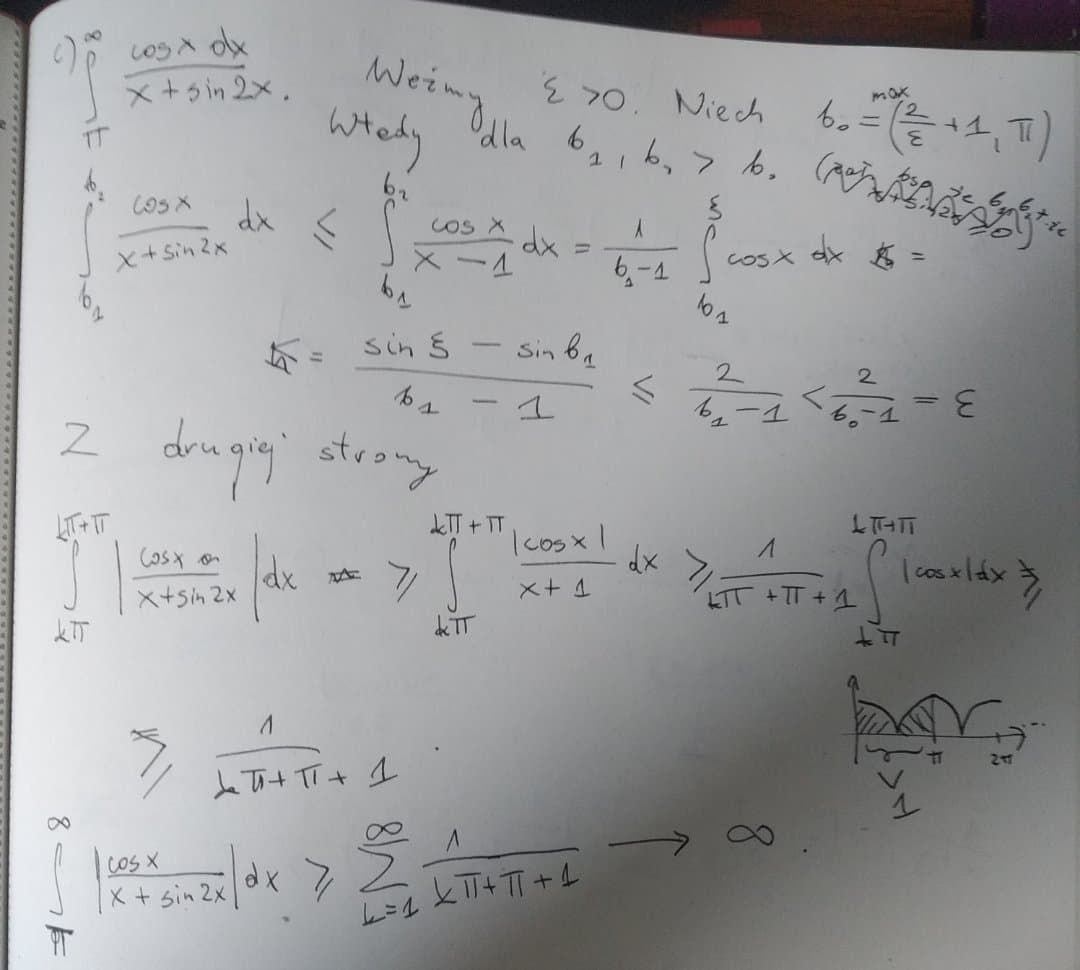 c) ∫_π^∞ cosx dx / (x + sin2x). Weźmy ε > 0. Niech b₀ = max(2/ε + 1, π)
Wtedy dla b₁, b₂ > b₀
∫_{b₁}^{b₂} cosx / (x + sin2x) dx ≤ ∫_{b₁}^{b₂} cosx / (x − 1) dx = 1/(b₁−1) ∫_{b₁}^{ξ} cosx dx =
= (sin ξ − sin b₁) / (b₁ − 1) ≤ 2/(b₁−1) < 2/(b₀−1) = ε
Z drugiej strony
∫_{kπ}^{kπ+π} |cosx / (x+sin2x)| dx ≥ ∫_{kπ}^{kπ+π} |cosx| / (x+1) dx ≥ 1/(kπ+π+1) ∫_{kπ}^{kπ+π} |cosx| dx ≥
≥ 1/(kπ+π+1).
π 2π ...
∨
1
∫_π^∞ |cosx / (x + sin2x)| dx ≥ ∑_{k=1}^∞ 1/(kπ+π+1) → ∞.